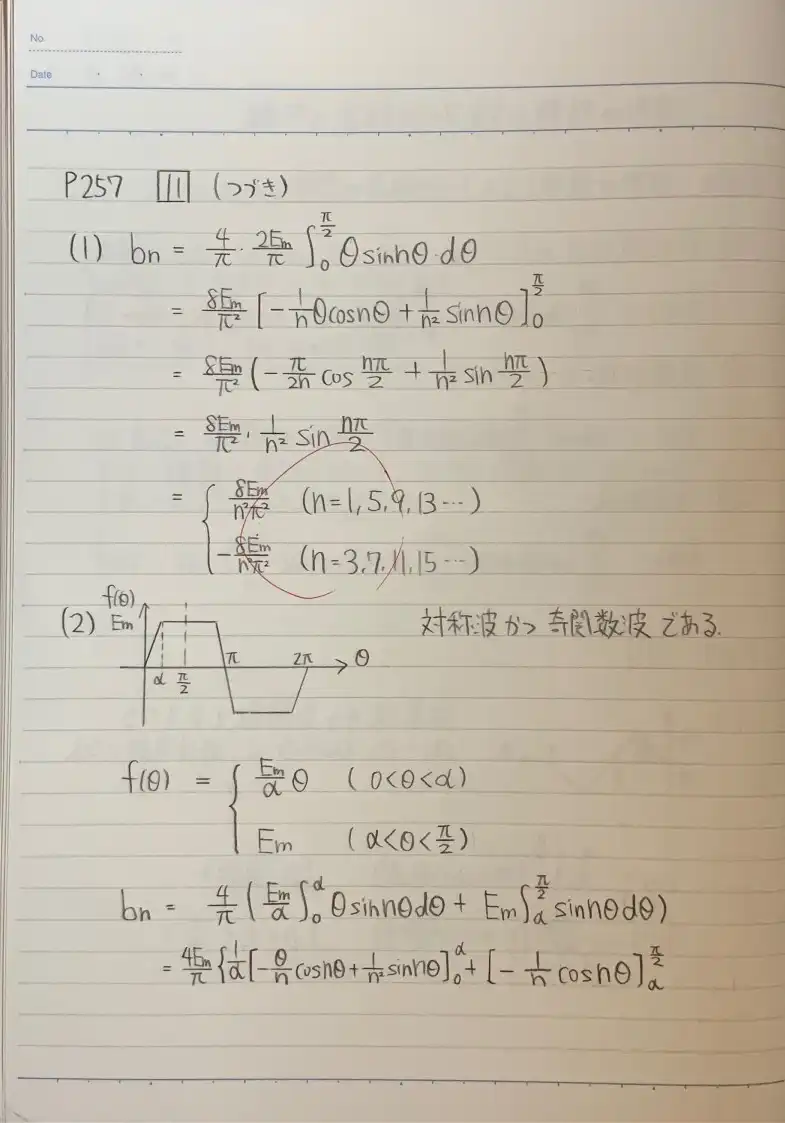 No.
Date
P257 11 (つづき)
(1) bn = 4/π · 2Em/π ∫₀^{π/2} θ sin nθ · dθ
= 8Em/π² [ -1/n θ cos nθ + 1/n² sin nθ ]₀^{π/2}
= 8Em/π² ( -π/2n cos nπ/2 + 1/n² sin nπ/2 )
= 8Em/π² · 1/n² sin nπ/2
= { 8Em/n²π² (n=1, 5, 9, 13 ···)
-8Em/n²π² (n=3, 7, 11, 15 ···)
f(θ)
(2) Em 対称波かつ奇関数波である.
α π/2 π 2π θ
f(θ) = { Em/α θ (0<θ<α)
Em (α<θ<π/2)
bn = 4/π ( Em/α ∫₀^α θ sin nθ dθ + Em ∫_α^{π/2} sin nθ dθ )
= 4Em/π { 1/α [ -θ/n cos nθ + 1/n² sin nθ ]₀^α + [ -1/n cos nθ ]_α^{π/2}